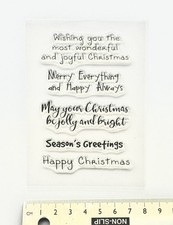 Wishing you the
most wonderful
and joyful Christmas
Merry Everything
and Happy Always
May your Christmas
be jolly and bright
Season's Greetings
Happy Christmas
NON-SLIP